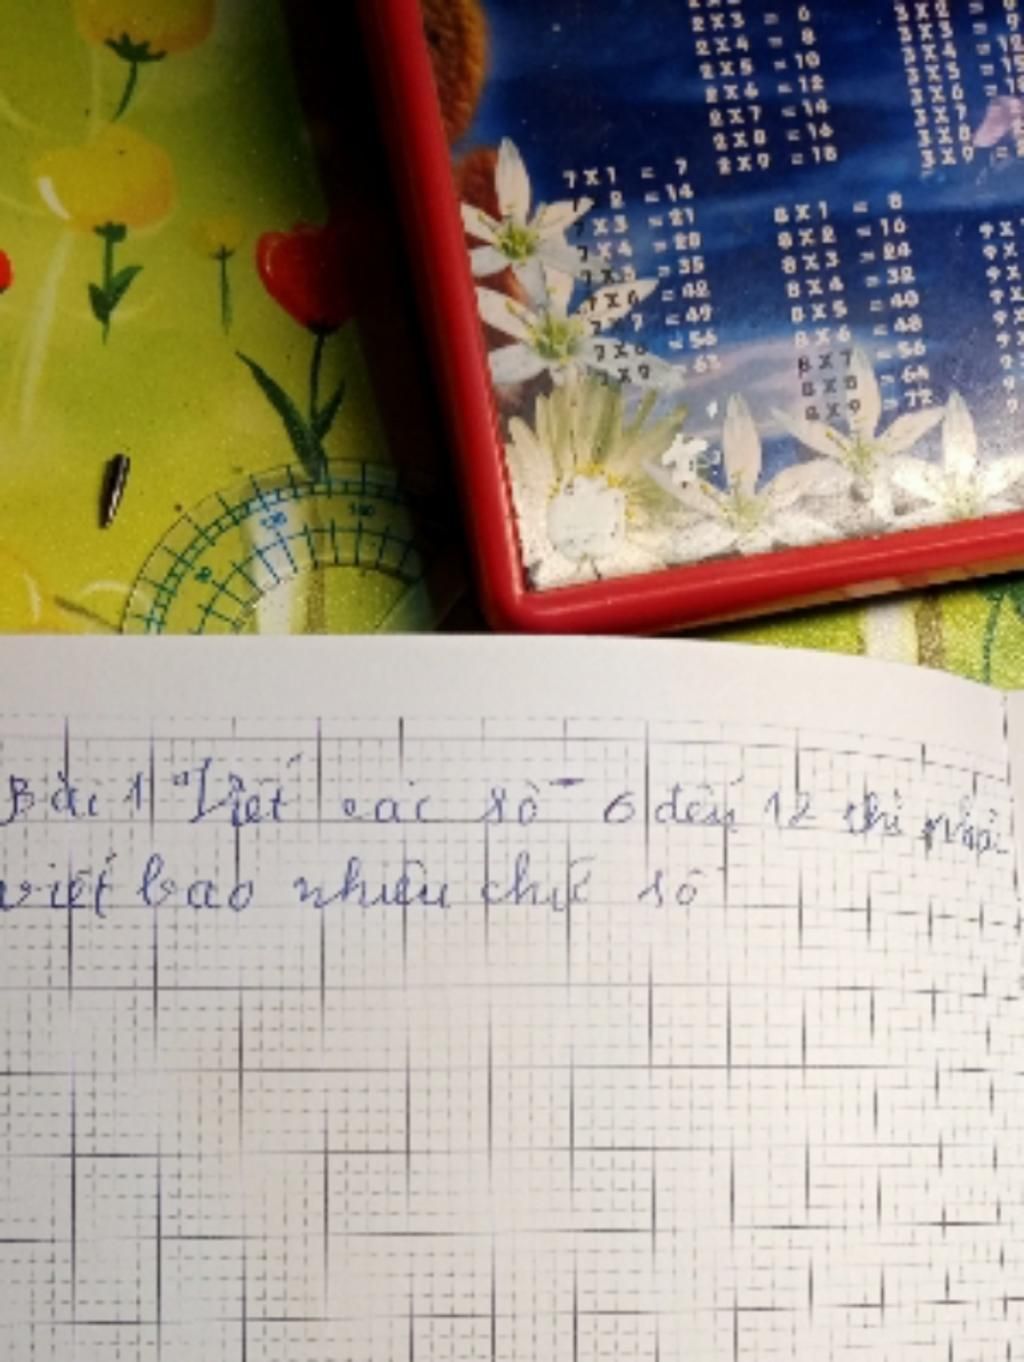 2 X 3 = 6
2 X 4 = 8
2 X 5 = 10
2 X 6 = 12
2 X 7 = 14
2 X 8 = 16
2 X 9 = 18
3 X 2 =
3 X 3 = 9
3 X 4 = 12
3 X 5 = 15
3 X 6 =
3 X 7
3 X 8
3 X 9 =
7 X 1 = 7
2 = 14
7 X 3 = 21
7 X 4 = 28
7 X 5 = 35
7 X 6 = 42
7 = 49
7 X 8 = 56
X 9 = 63
8 X 1 = 8
8 X 2 = 16
8 X 3 = 24
8 X 4 = 32
8 X 5 = 40
8 X 6 = 48
8 X 7 = 56
8 X 8 = 64
8 X 9 = 72
9 X
9 X
9 X
9 X
9 X
9
9
9
Bài 1 Viết các số 6 đến 12 thì phải
viết bao nhiêu chữ số